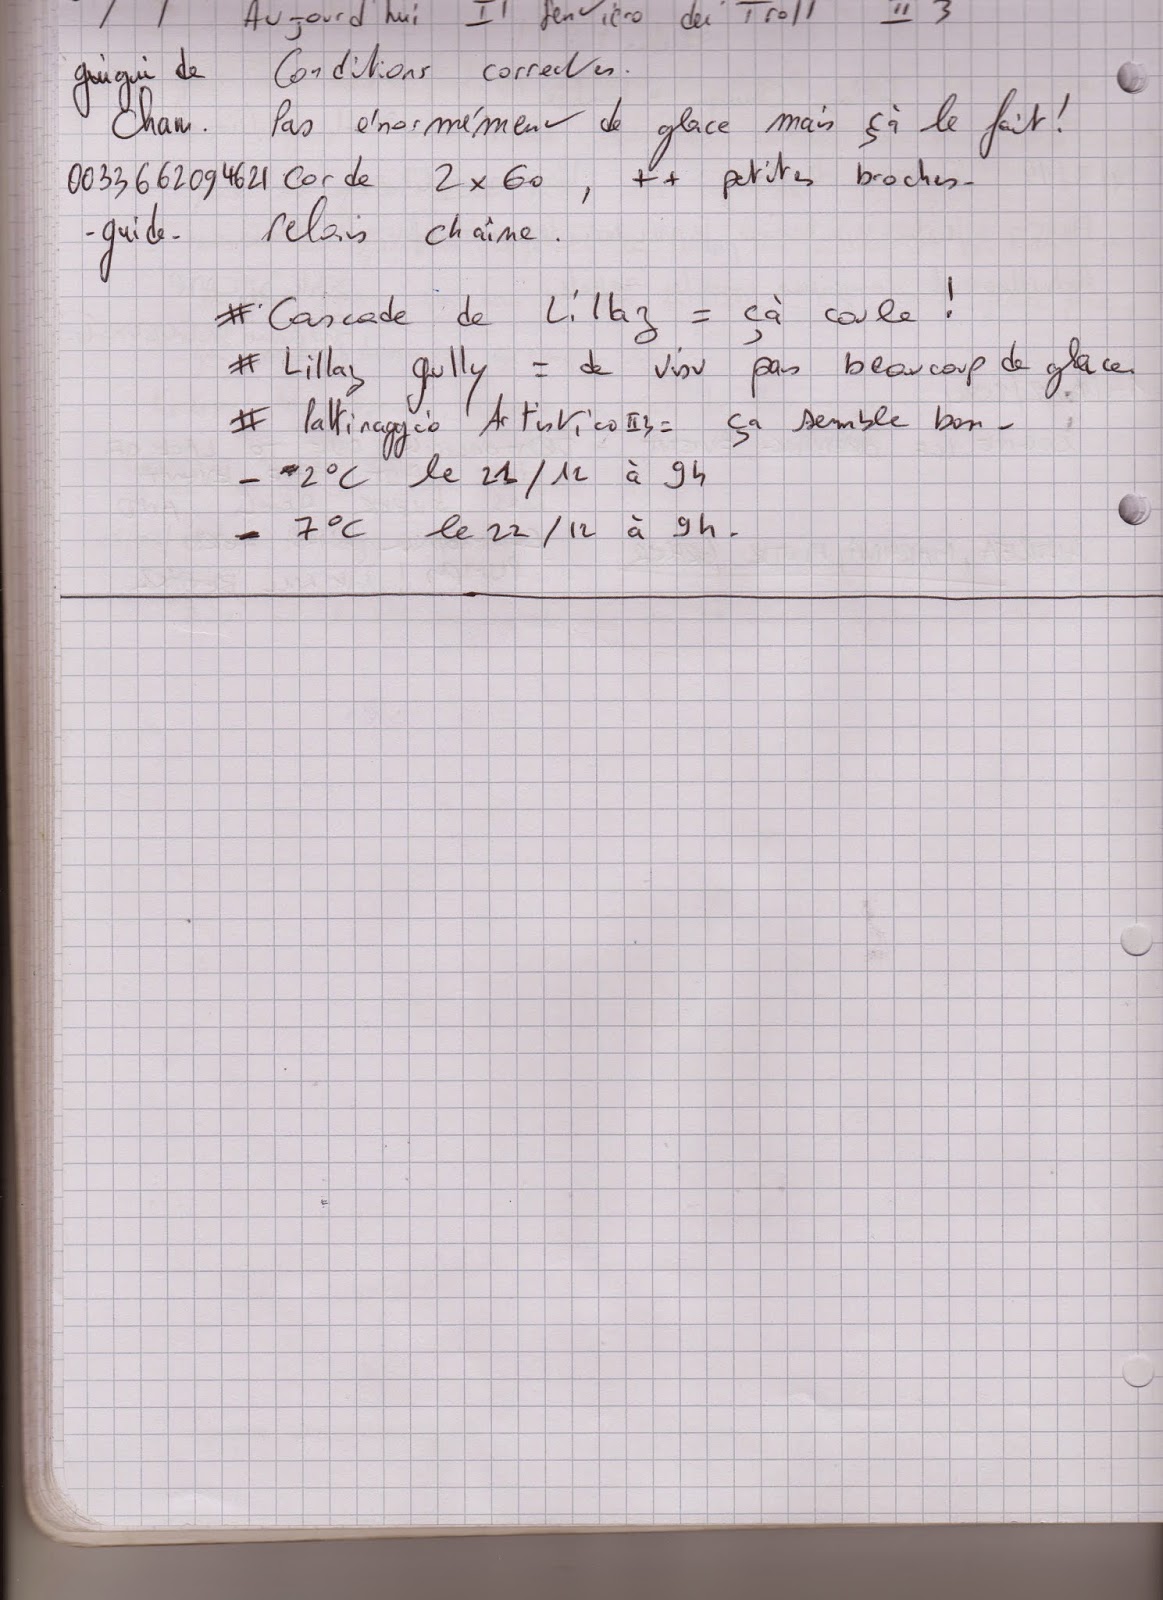 Aujourd'hui Il Sentiero dei Troll II 3
guigui de Conditions correctes.
Cham. Pas énormément de glace mais çà le fait!
0033662094621 Corde 2 x 60, ++ petites broches-
-guide- relais chaîne.
# Cascade de Lillaz = çà coule!
# Lillaz gully = de visu pas beaucoup de glace.
# Pattinaggio Artistico II3= ça semble bon-
- -2°C le 21/12 à 9h
- 7°C le 22/12 à 9h.